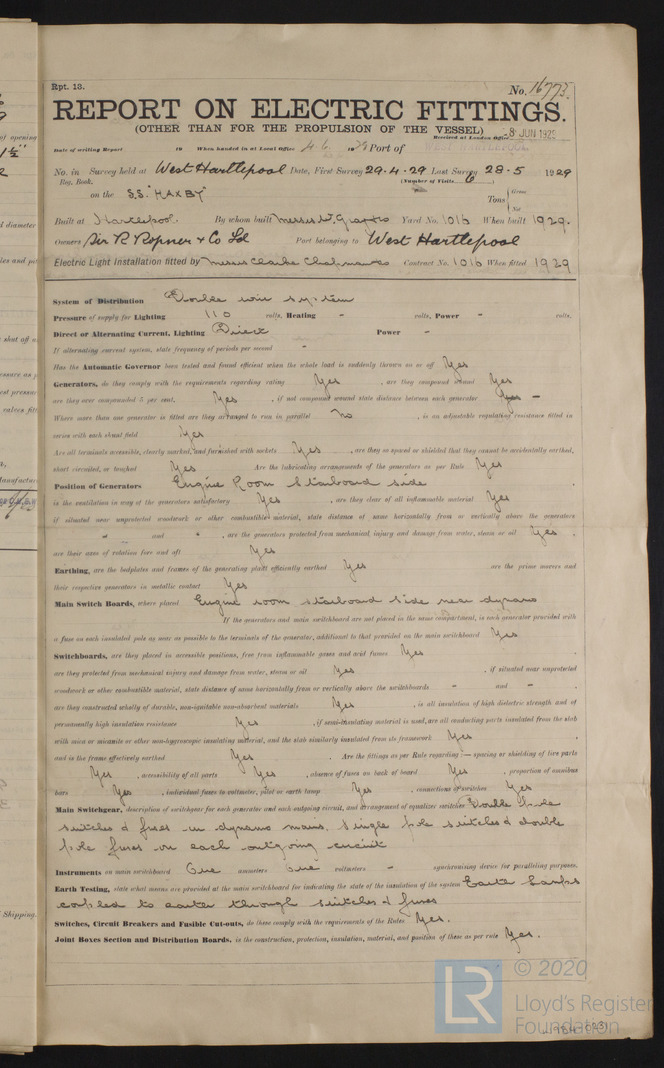 Rpt. 13.
No. 16773.
REPORT ON ELECTRIC FITTINGS.
(OTHER THAN FOR THE PROPULSION OF THE VESSEL)
Received at London Office 8 JUN 1929
Date of writing Report 19 When handed in at Local Office 4.6. 1929 Port of WEST HARTLEPOOL
No. in Survey held at West Hartlepool Date, First Survey 29.4.29 Last Survey 28.5 1929
Reg. Book. (Number of Visits 6)
on the S.S. "HAXBY" Tons { Gross Net
Built at Hartlepool. By whom built Messrs W. Gray & Co Yard No. 1016 When built 1929.
Owners Sir R Ropner & Co Ld Port belonging to West Hartlepool
Electric Light Installation fitted by Messrs Clarke Chapman & Co Contract No. 1016 When fitted 1929
System of Distribution Double wire system
Pressure of supply for Lighting 110 volts, Heating - volts, Power - volts.
Direct or Alternating Current, Lighting Direct Power -
If alternating current system, state frequency of periods per second -
Has the Automatic Governor been tested and found efficient when the whole load is suddenly thrown on or off Yes
Generators, do they comply with the requirements regarding rating Yes , are they compound wound Yes
are they over compounded 5 per cent. Yes , if not compound wound state distance between each generator Yes -
Where more than one generator is fitted are they arranged to run in parallel No , is an adjustable regulating resistance fitted in
series with each shunt field Yes
Are all terminals accessible, clearly marked, and furnished with sockets Yes , are they so spaced or shielded that they cannot be accidentally earthed,
short circuited, or touched Yes Are the lubricating arrangements of the generators as per Rule Yes
Position of Generators Engine Room Starboard side
is the ventilation in way of the generators satisfactory Yes , are they clear of all inflammable material Yes
if situated near unprotected woodwork or other combustible material, state distance of same horizontally from or vertically above the generators
" and " , are the generators protected from mechanical injury and damage from water, steam or oil Yes ,
are their axes of rotation fore and aft Yes
Earthing, are the bedplates and frames of the generating plant efficiently earthed Yes are the prime movers and
their respective generators in metallic contact Yes
Main Switch Boards, where placed Engine room starboard side near dynamo
If the generators and main switchboard are not placed in the same compartment, is each generator provided with
a fuse on each insulated pole as near as possible to the terminals of the generator, additional to that provided on the main switchboard Yes
Switchboards, are they placed in accessible positions, free from inflammable gases and acid fumes Yes
are they protected from mechanical injury and damage from water, steam or oil Yes , if situated near unprotected
woodwork or other combustible material, state distance of same horizontally from or vertically above the switchboards - and -
are they constructed wholly of durable, non-ignitable non-absorbent materials Yes , is all insulation of high dielectric strength and of
permanently high insulation resistance Yes , if semi-insulating material is used, are all conducting parts insulated from the slab
with mica or micanite or other non-hygroscopic insulating material, and the slab similarly insulated from its framework Yes
and is the frame effectively earthed Yes . Are the fittings as per Rule regarding:— spacing or shielding of live parts
Yes , accessibility of all parts Yes , absence of fuses on back of board Yes , proportion of omnibus
bars Yes , individual fuses to voltmeter, pilot or earth lamp Yes , connections of switches Yes
Main Switchgear, description of switchgear for each generator and each outgoing circuit, and arrangement of equalizer switches Double Pole
switches & fuses in dynamo mains. Single pole switches & double
pole fuses on each outgoing circuit
Instruments on main switchboard One ammeters One voltmeters - synchronising device for paralleling purposes.
Earth Testing, state what means are provided at the main switchboard for indicating the state of the insulation of the system Earth Lamps
coupled to earth through switches & fuses
Switches, Circuit Breakers and Fusible Cut-outs, do these comply with the requirements of the Rules Yes.
Joint Boxes Section and Distribution Boards, is the construction, protection, insulation, material, and position of these as per rule Yes.
LR
© 2020
Lloyd's Register
Foundation